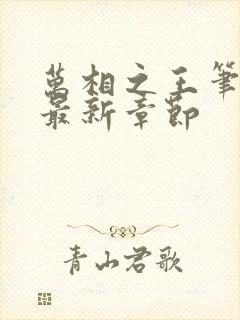 萬相之王筆
最新章節
青山君歌